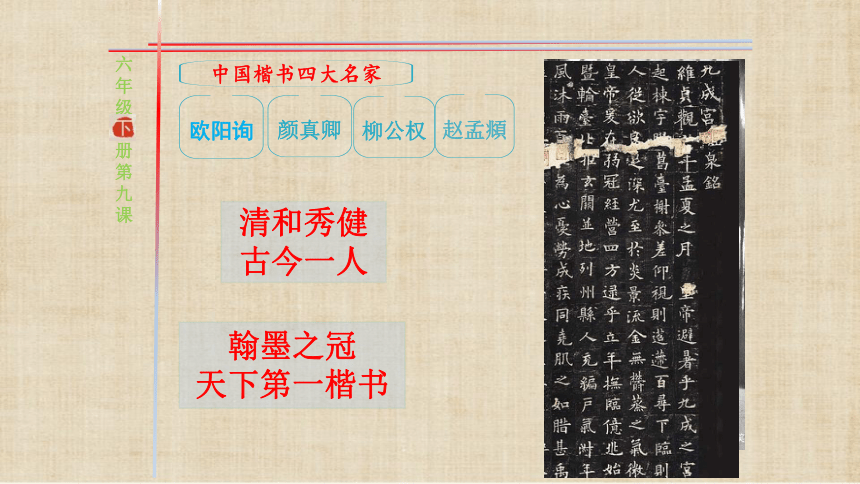 六年级下册第九课
中国楷书四大名家
欧阳询
颜真卿
柳公权
赵孟頫
清和秀健
古今一人
翰墨之冠
天下第一楷书
九成宮泉銘
維貞觀年孟夏之月皇帝避暑乎九成之宮
起棟宇膠葛臺榭參差仰視則迢遰百尋下臨則
人從欲良足深尤至於炎景流金無鬱蒸之氣微
皇帝爰在弱冠經營四方逮乎立年撫臨億兆始
暨輪臺北拒玄闕並地列州縣人充編戶氣淑年
風沐雨百為心憂勞成疾同堯肌之如腊甚禹